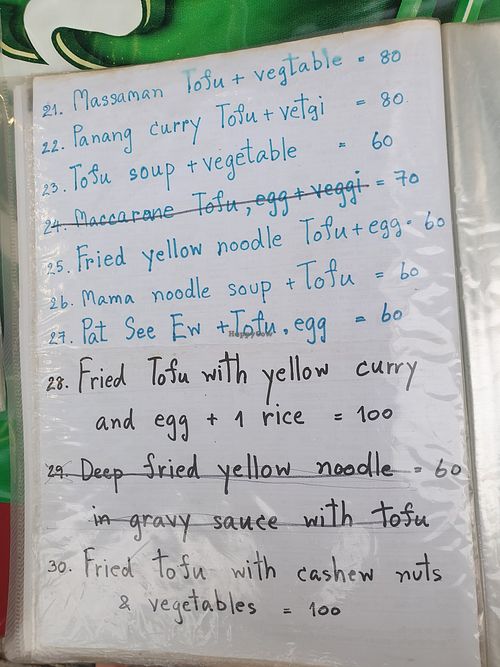 21. Massaman Tofu + vegtable = 80
22. Panang curry Tofu + vetgi = 80
23. Tofu soup + vegetable = 60
24. Maccarone Tofu, egg + veggi = 70
25. Fried yellow noodle Tofu + egg = 60
26. Mama noodle soup + Tofu = 60
27. Pat See Ew + Tofu, egg = 60
HappyCow
28. Fried Tofu with yellow curry
and egg + 1 rice = 100
29. Deep fried yellow noodle = 60
in gravy sauce with tofu
30. Fried tofu with cashew nuts
& vegetables = 100